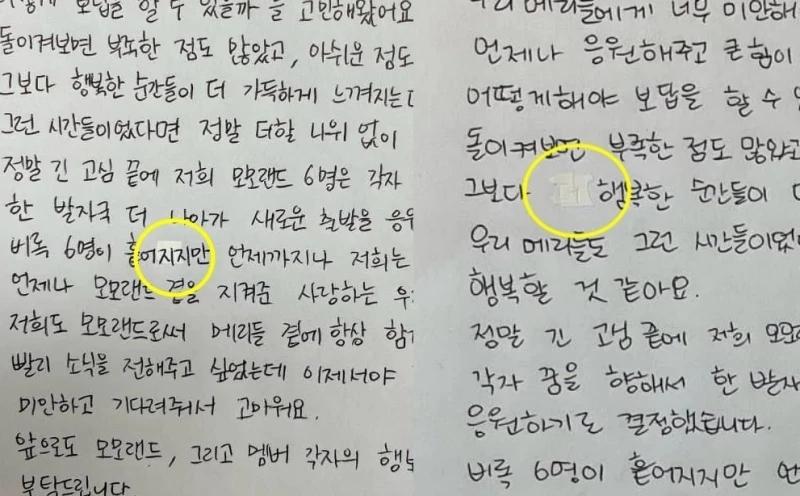 보답을 할 수 있을까 를 고민해왔어요
돌이켜보면 부족한 점도 많았고, 아쉬운 점도
그보다 행복한 순간들이 더 가득하게 느껴지는
그런 시간들이였다면 정말 더할 나위 없이
정말 긴 고심 끝에 저희 모모랜드 6명은 각자
한 발자국 더 나아가 새로운 출발을 응
비록 6명이 흩어지지만 언제까지나 저희는
언제나 모모랜드 곁을 지켜준 사랑하는 우
저희도 모모랜드로써 메리들 곁에 항상 함
빨리 소식을 전해주고 싶었는데 이제서야
미안하고 기다려줘서 고마워요.
앞으로도 모모랜드, 그리고 멤버 각자의 행
부탁드립니다
우리 메리들에게 너무 미안해
언제나 응원해주고 큰 힘이
어떻게해야 보답을 할 수 있
돌이켜보면 부족한 점도 많았고
그보다 행복한 순간들이
우리 메리들도 그런 시간들이었
행복할 것 같아요.
정말 긴 고심 끝에 저희 모모
각자 꿈을 향해서 한 발자
응원하기로 결정했습니다.
비록 6명이 흩어지지만 언